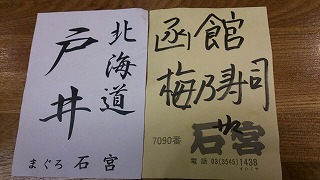 北海道
戸井
まぐろ 石宮
函館
梅乃寿司
7090番
石宮
電話 03(3545)1438
イシミヤ